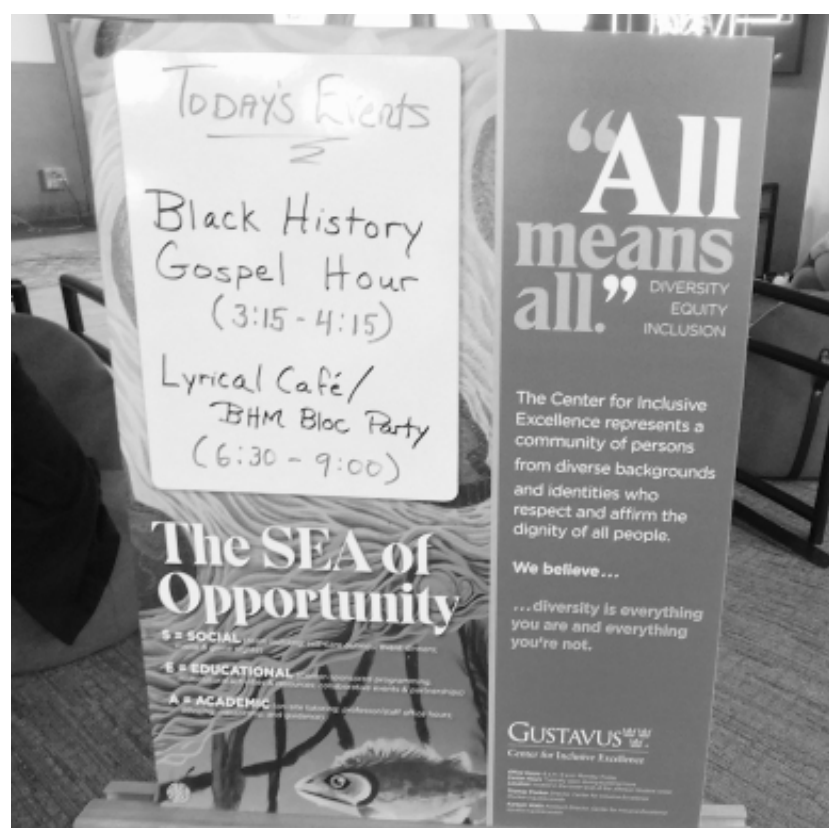 TODAY'S Events
Black History
Gospel Hour
(3:15 - 4:15)
Lyrical Café/
BHM Bloc Party
(6:30 - 9:00)
The SEA of
Opportunity
S = SOCIAL
E = EDUCATIONAL
A = ACADEMIC
“All
means
all.”
DIVERSITY
EQUITY
INCLUSION
The Center for Inclusive
Excellence represents a
community of persons
from diverse backgrounds
and identities who
respect and affirm the
dignity of all people.
We believe...
...diversity is everything
you are and everything
you're not.
GUSTAVUS
Center for Inclusive Excellence